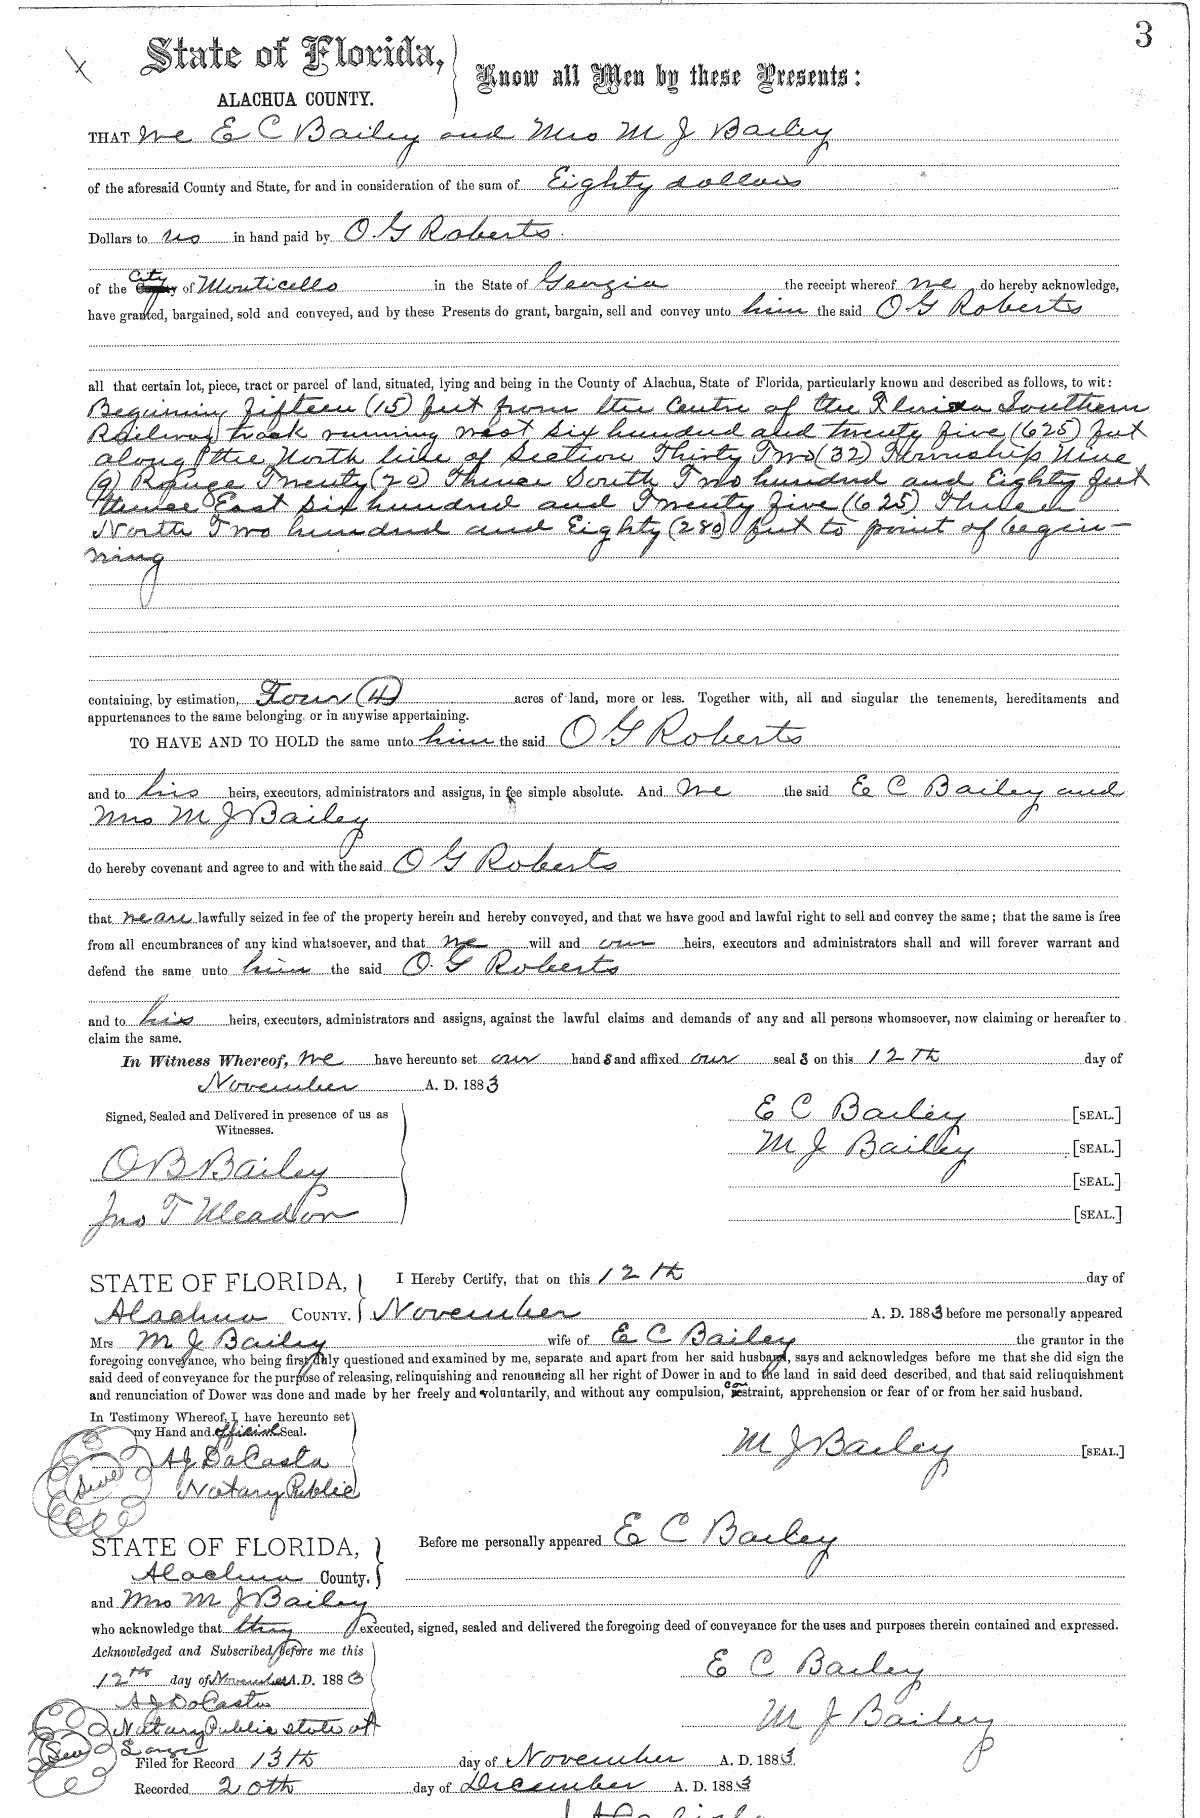 3
State of Florida, Know all Men by these Presents:
ALACHUA COUNTY.
THAT we E C Bailey and Mrs M J Bailey
of the aforesaid County and State, for and in consideration of the sum of Eighty dollars
Dollars to us in hand paid by O. G Roberts.
of the City of Monticello in the State of Georgia the receipt whereof we do hereby acknowledge,
have granted, bargained, sold and conveyed, and by these Presents do grant, bargain, sell and convey unto him the said O G Roberts
all that certain lot, piece, tract or parcel of land, situated, lying and being in the County of Alachua, State of Florida, particularly known and described as follows, to wit:
Beginning fifteen (15) feet from the Centre of the Florida Southern
Railway track running west six hundred and twenty five (625) feet
along the North line of Section Thirty Two (32) Township Nine
(9) Range Twenty (20) Thence South Two hundred and Eighty feet
thence East six hundred and Twenty five (625) Thence
North Two hundred and Eighty (280) feet to point of begin-
ning
containing, by estimation, Four (4) acres of land, more or less. Together with, all and singular the tenements, hereditaments and
appurtenances to the same belonging, or in anywise appertaining.
TO HAVE AND TO HOLD the same unto him the said O G Roberts
and to his heirs, executors, administrators and assigns, in fee simple absolute. And we the said E C Bailey and
Mrs M J Bailey
do hereby covenant and agree to and with the said O G Roberts
that we are lawfully seized in fee of the property herein and hereby conveyed, and that we have good and lawful right to sell and convey the same; that the same is free
from all encumbrances of any kind whatsoever, and that we will and our heirs, executors and administrators shall and will forever warrant and
defend the same unto him the said O. G Roberts
and to his heirs, executors, administrators and assigns, against the lawful claims and demands of any and all persons whomsoever, now claiming or hereafter to
claim the same.
In Witness Whereof, we have hereunto set our hand s and affixed our seal s on this 12th day of
November A. D. 1883
Signed, Sealed and Delivered in presence of us as
Witnesses.
E C Bailey [SEAL.]
M J Bailey [SEAL.]
O B Bailey [SEAL.]
Jno T [SEAL.]
STATE OF FLORIDA, I Hereby Certify, that on this 12th day of
Alachua COUNTY. November A. D. 1883 before me personally appeared
Mrs M J Bailey wife of E C Bailey the grantor in the
foregoing conveyance, who being first duly questioned and examined by me, separate and apart from her said husband, says and acknowledges before me that she did sign the
said deed of conveyance for the purpose of releasing, relinquishing and renouncing all her right of Dower in and to the land in said deed described, and that said relinquishment
and renunciation of Dower was done and made by her freely and voluntarily, and without any compulsion, constraint, apprehension or fear of or from her said husband.
In Testimony Whereof, I have hereunto set
my Hand and official Seal.
A J DaCosta M J Bailey [SEAL.]
Seal Notary Public
STATE OF FLORIDA, Before me personally appeared E C Bailey
Alachua County.
and Mrs M J Bailey
who acknowledge that they executed, signed, sealed and delivered the foregoing deed of conveyance for the uses and purposes therein contained and expressed.
Acknowledged and Subscribed before me this
12th day of November A.D. 1883 E C Bailey
A J DaCosta
Notary Public state at M J Bailey
Seal Large
Filed for Record 13th day of November A. D. 1883
Recorded 20th day of December A. D. 1883